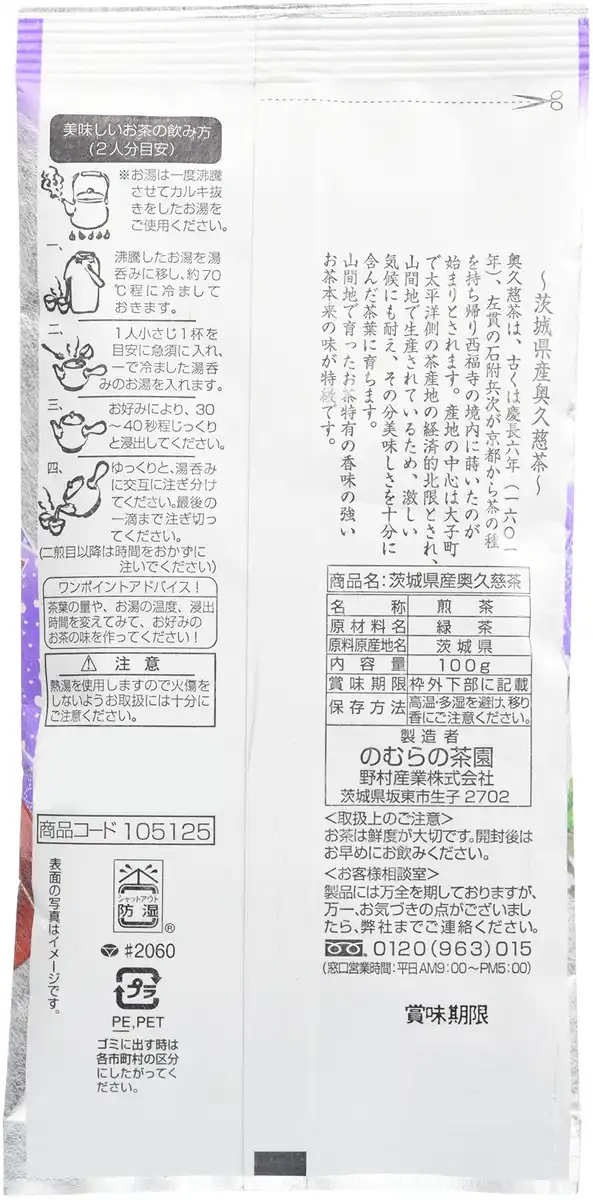 美味しいお茶の飲み方
(2人分目安)
※お湯は一度沸騰
させてカルキ抜
きをしたお湯を
ご使用ください。
一、
沸騰したお湯を湯
呑みに移し、約70
℃程に冷まして
おきます。
二、
1人小さじ1杯を
目安に急須に入れ、
一で冷ました湯呑
みのお湯を入れます。
三、
お好みにより、30
〜40秒程じっくり
と浸出してください。
四、
ゆっくりと、湯呑み
に交互に注ぎ分け
てください。最後の
一滴まで注ぎ切っ
てください。
(二煎目以降は時間をおかずに
注いでください)
ワンポイントアドバイス!
茶葉の量や、お湯の温度、浸出
時間を変えてみて、お好みの
お茶の味を作ってください!
⚠ 注意
熱湯を使用しますので火傷を
しないようお取扱には十分に
ご注意ください。
商品コード 105125
表面の写真はイメージです。
シャットアウト
防湿
®
#2060
プラ
PE,PET
ゴミに出す時は
各市町村の区分
にしたがってく
ださい。
〜茨城県産奥久慈茶〜
奥久慈茶は、古くは慶長六年(一六〇一
年)、左貫の石附兵次が京都から茶の種
を持ち帰り西福寺の境内に蒔いたのが
始まりとされます。産地の中心は大子町
で太平洋側の茶産地の経済的北限とされ、
山間地で生産されているため、激しい
気候にも耐え、その分美味しさを十分に
含んだ茶葉に育ちます。
山間地で育ったお茶特有の香味の強い
お茶本来の味が特徴です。
商品名:茨城県産奥久慈茶
名称 煎茶
原材料名 緑茶
原料原産地名 茨城県
内容量 100g
賞味期限 枠外下部に記載
保存方法 高温・多湿を避け、移り
香にご注意ください。
製造者
のむらの茶園
野村産業株式会社
茨城県坂東市生子2702
<取扱上のご注意>
お茶は鮮度が大切です。開封後は
お早めにお飲みください。
<お客様相談室>
製品には万全を期しておりますが、
万一、お気づきの点がございまし
たら、弊社までご連絡ください。
0120(963)015
(窓口営業時間:平日AM9:00〜PM5:00)
賞味期限